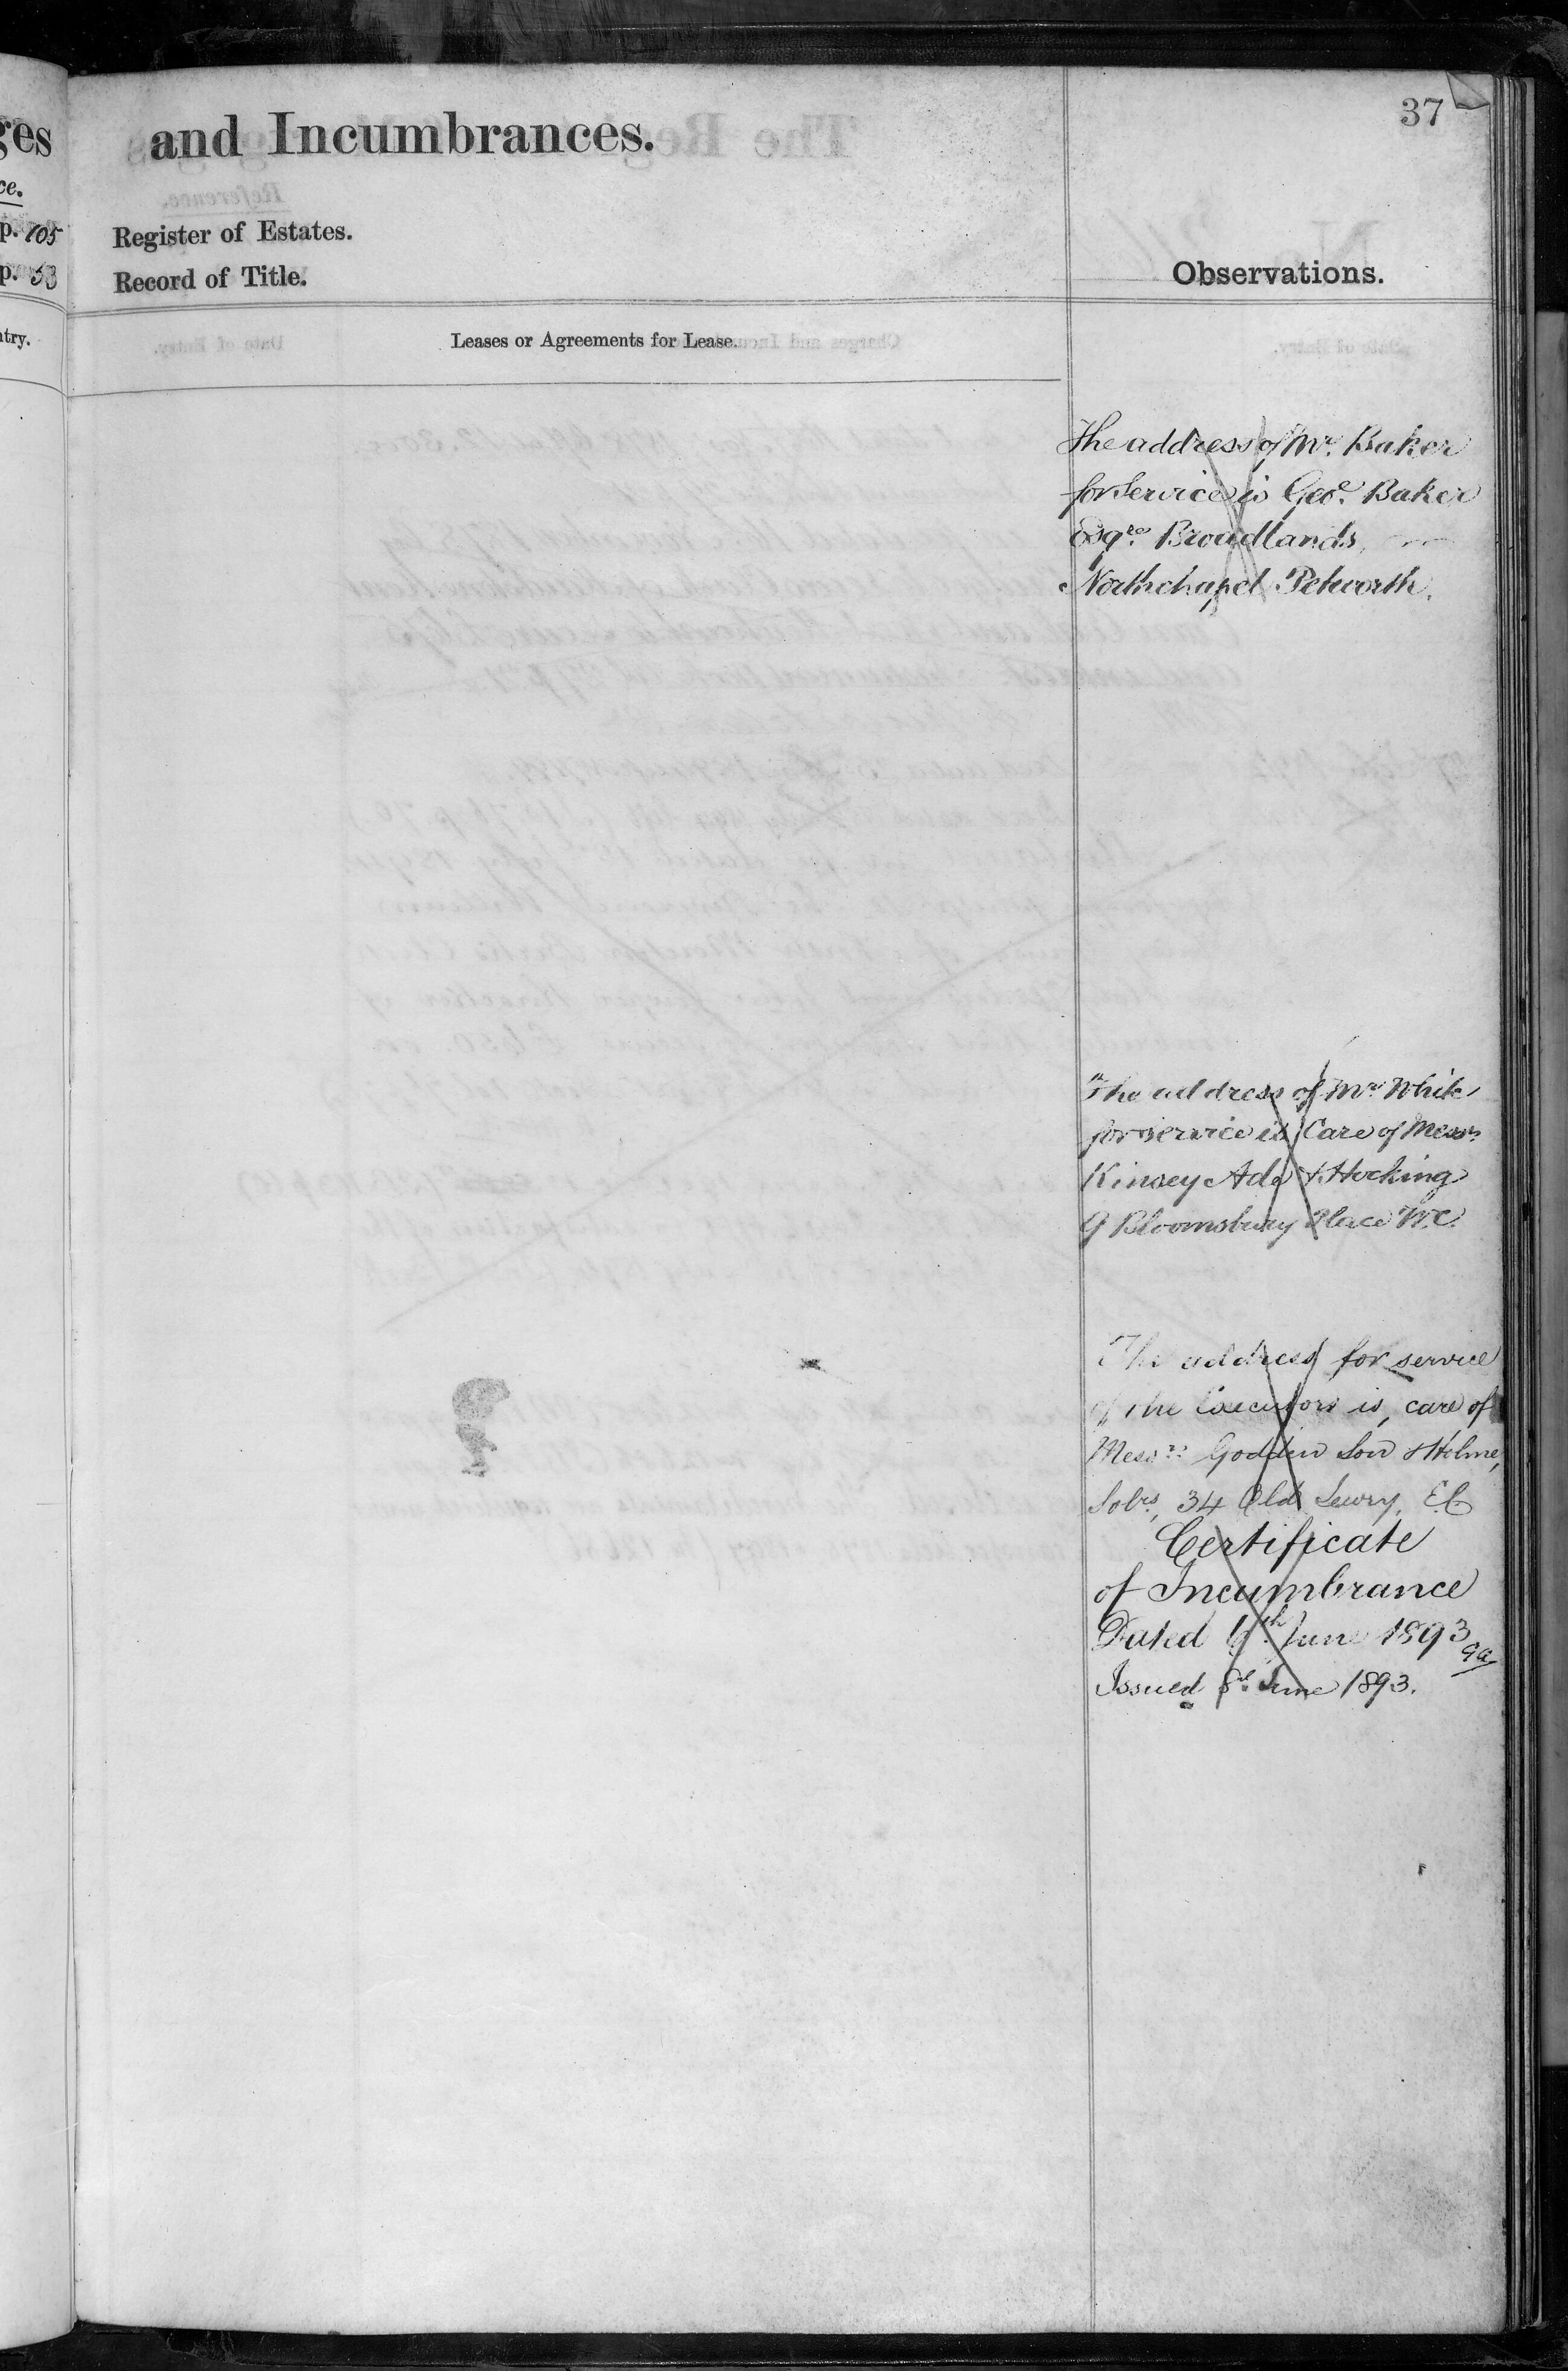 37
ges
and Incumbrances.
ce.
p. 105
Register of Estates.
p. 53
Record of Title.
Observations.
ntry.
Leases or Agreements for Lease.
The address of Mr. Baker
for Service is Geo. Baker
Esqre. Broadlands,
Northchapel Petworth.
The address of Mr White
for service is Care of Messrs
Kinsey Ade & Hocking
9 Bloomsbury Place W.C.
The address for service
of the Executors is, care of
Messrs Godden Son & Holme,
Solrs, 34 Old Jewry, E.C
Certificate
of Incumbrance
Dated June 1893
Issued 8th June 1893.